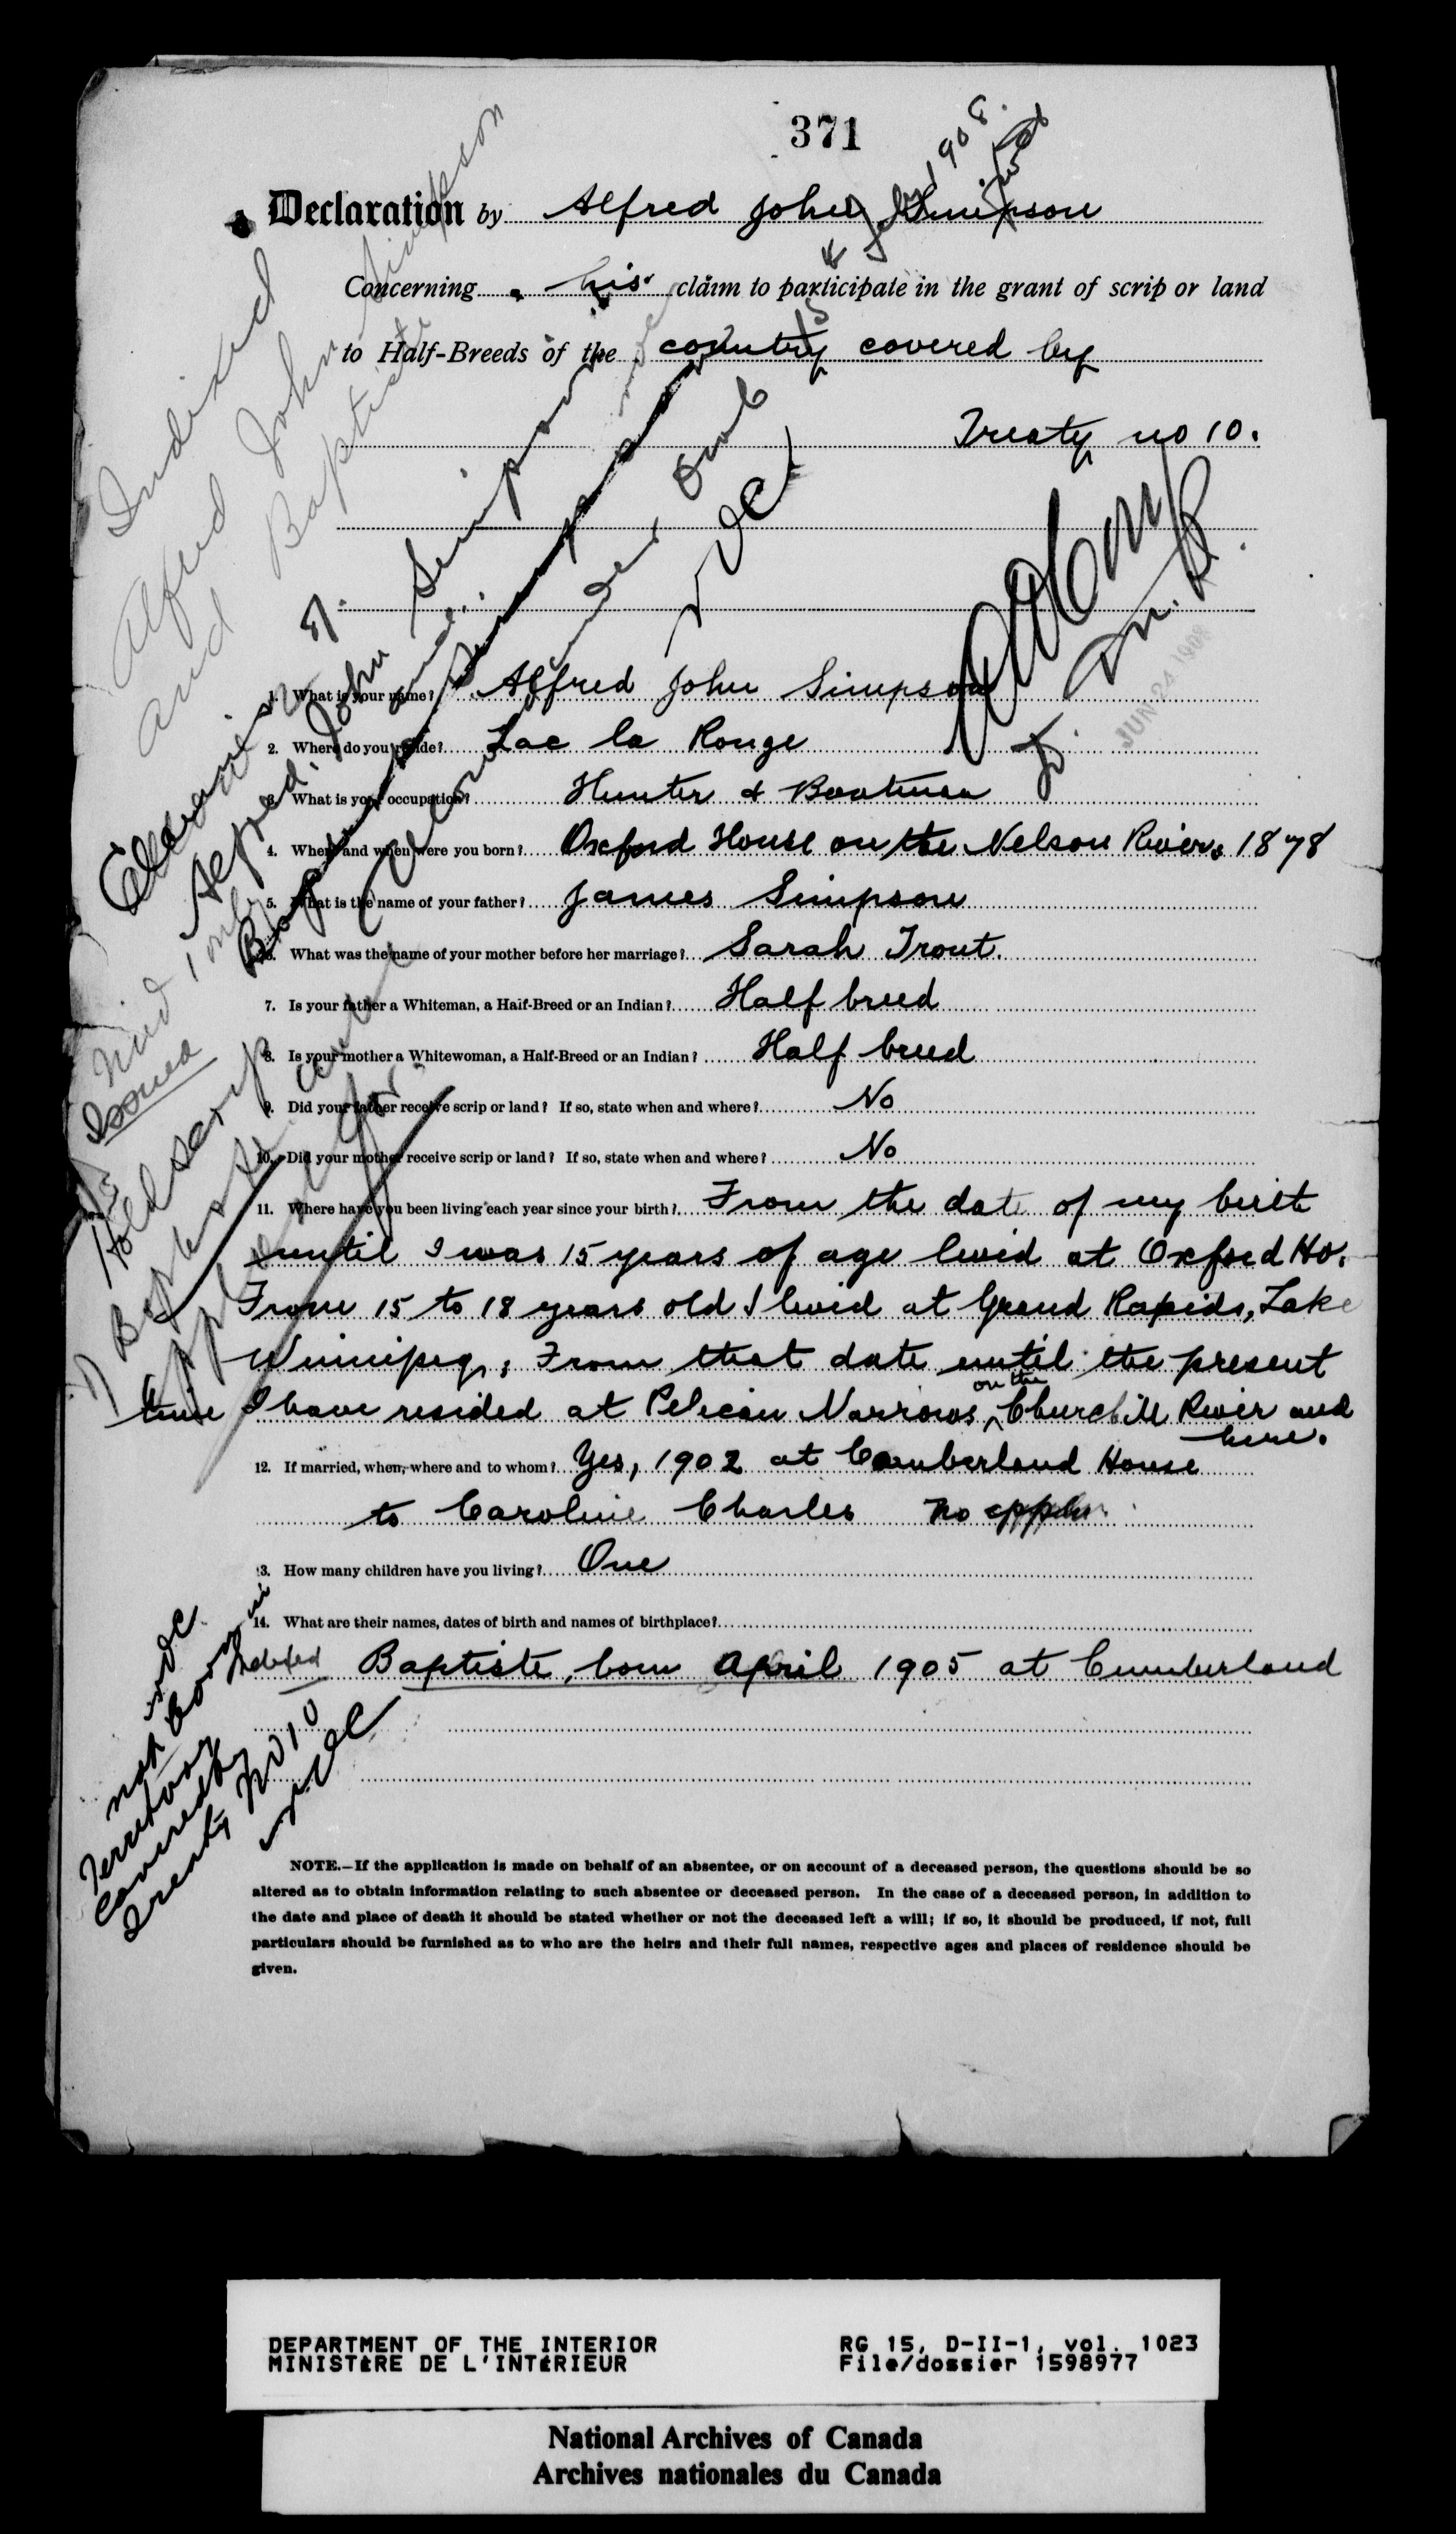 371
Declaration by Alfred John Simpson
Concerning his claim to participate in the grant of scrip or land
to Half-Breeds of the country covered by
Treaty no 10.
1908.
Indexed
Alfred John Simpson
and Baptiste
Alfred John Simpson
JUN 24 1908
1. What is your name? Alfred John Simpson
2. Where do you reside? Lac la Ronge
3. What is your occupation? Hunter & Boatman
4. Where and when were you born? Oxford House on the Nelson River, 1878
5. What is the name of your father? James Simpson
6. What was the name of your mother before her marriage? Sarah Trout.
7. Is your father a Whiteman, a Half-Breed or an Indian? Half breed
8. Is your mother a Whitewoman, a Half-Breed or an Indian? Half breed
9. Did your father receive scrip or land? If so, state when and where? No
10. Did your mother receive scrip or land? If so, state when and where? No
Issued
Hold scrip
11. Where have you been living each year since your birth? From the date of my birth
until I was 15 years of age lived at Oxford Ho.
From 15 to 18 years old I lived at Grand Rapids, Lake
Winnipeg, From that date until the present
time I have resided at Pelican Narrows on the Churchill River and
here.
12. If married, when, where and to whom? Yes, 1902 at Cumberland House
to Caroline Charles No appln.
13. How many children have you living? One
14. What are their names, dates of birth and names of birthplace?
Indexed Baptiste, born April 1905 at Cumberland
not born in
Territory
covered by
Treaty No 10
NOTE.—If the application is made on behalf of an absentee, or on account of a deceased person, the questions should be so
altered as to obtain information relating to such absentee or deceased person. In the case of a deceased person, in addition to
the date and place of death it should be stated whether or not the deceased left a will; if so, it should be produced, if not, full
particulars should be furnished as to who are the heirs and their full names, respective ages and places of residence should be
given.
DEPARTMENT OF THE INTERIOR
MINISTÈRE DE L'INTÉRIEUR
RG 15, D-II-1, vol. 1023
File/dossier 1598977
National Archives of Canada
Archives nationales du Canada